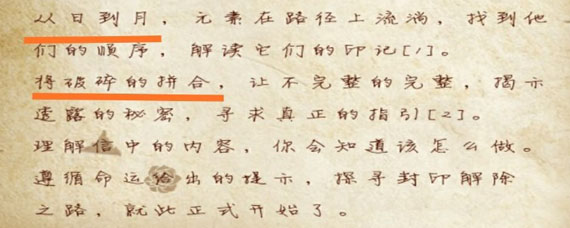 从日到月，元素在路径上流淌，找到他
们的顺序，解读它们的印记[1]。
将破碎的拼合，让不完整的完整，揭示
遗露的秘密，寻求真正的指引[2]。
理解信中的内容，你会知道该怎么做。
遵循命运给出的提示，探寻封印解除
之路，就此正式开始了。